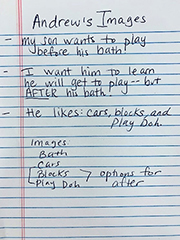 Andrew's Images
- my son wants to play
before his bath!
- I want him to learn
he will get to play -- but
AFTER his bath!
- He likes: cars, blocks, and
Play Doh.
Images:
Bath
Cars
Blocks > options for
Play Doh after